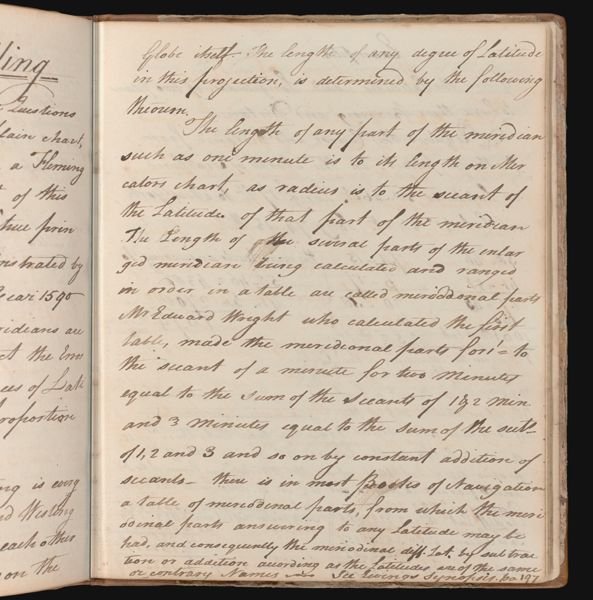 ling
Questions
lain chart,
a Fleming
of this
true prin
nstrated by
Year 1590
ridians are
ct the Erro
ces of Lati
roportion
ng is every
nd Westing
each other
on the
Globe itself. The length of any degree of Latitude
in this projection, is determined by the following
theorem.
The length of any part of the meridian
such as one minute is to its length on Mer
cators chart, as radius is to the secant of
the Latitude of that part of the meridian
The Length of the several parts of the enlar
ged meridian being calculated and ranged
in order in a table are called meriodonal parts
Mr Edward Wright who calculated the first
table, made the meridional parts for 1' = to
the secant of a minute for two minutes
equal to the sum of the secants of 1 & 2 min
and 3 minutes equal to the sum of the
of 1, 2 and 3 and so on by constant addition of
secants - there is in most Books of Navigation
a table of meriodinal parts, from which the meri
odinal parts answering to any Latitude may be
had, and consequently the meriodinal diff. Lat. by subtrac
tion or addition acording as the Latitudes are of the same
or contrary Names See Ewings Synopsis. pa 197